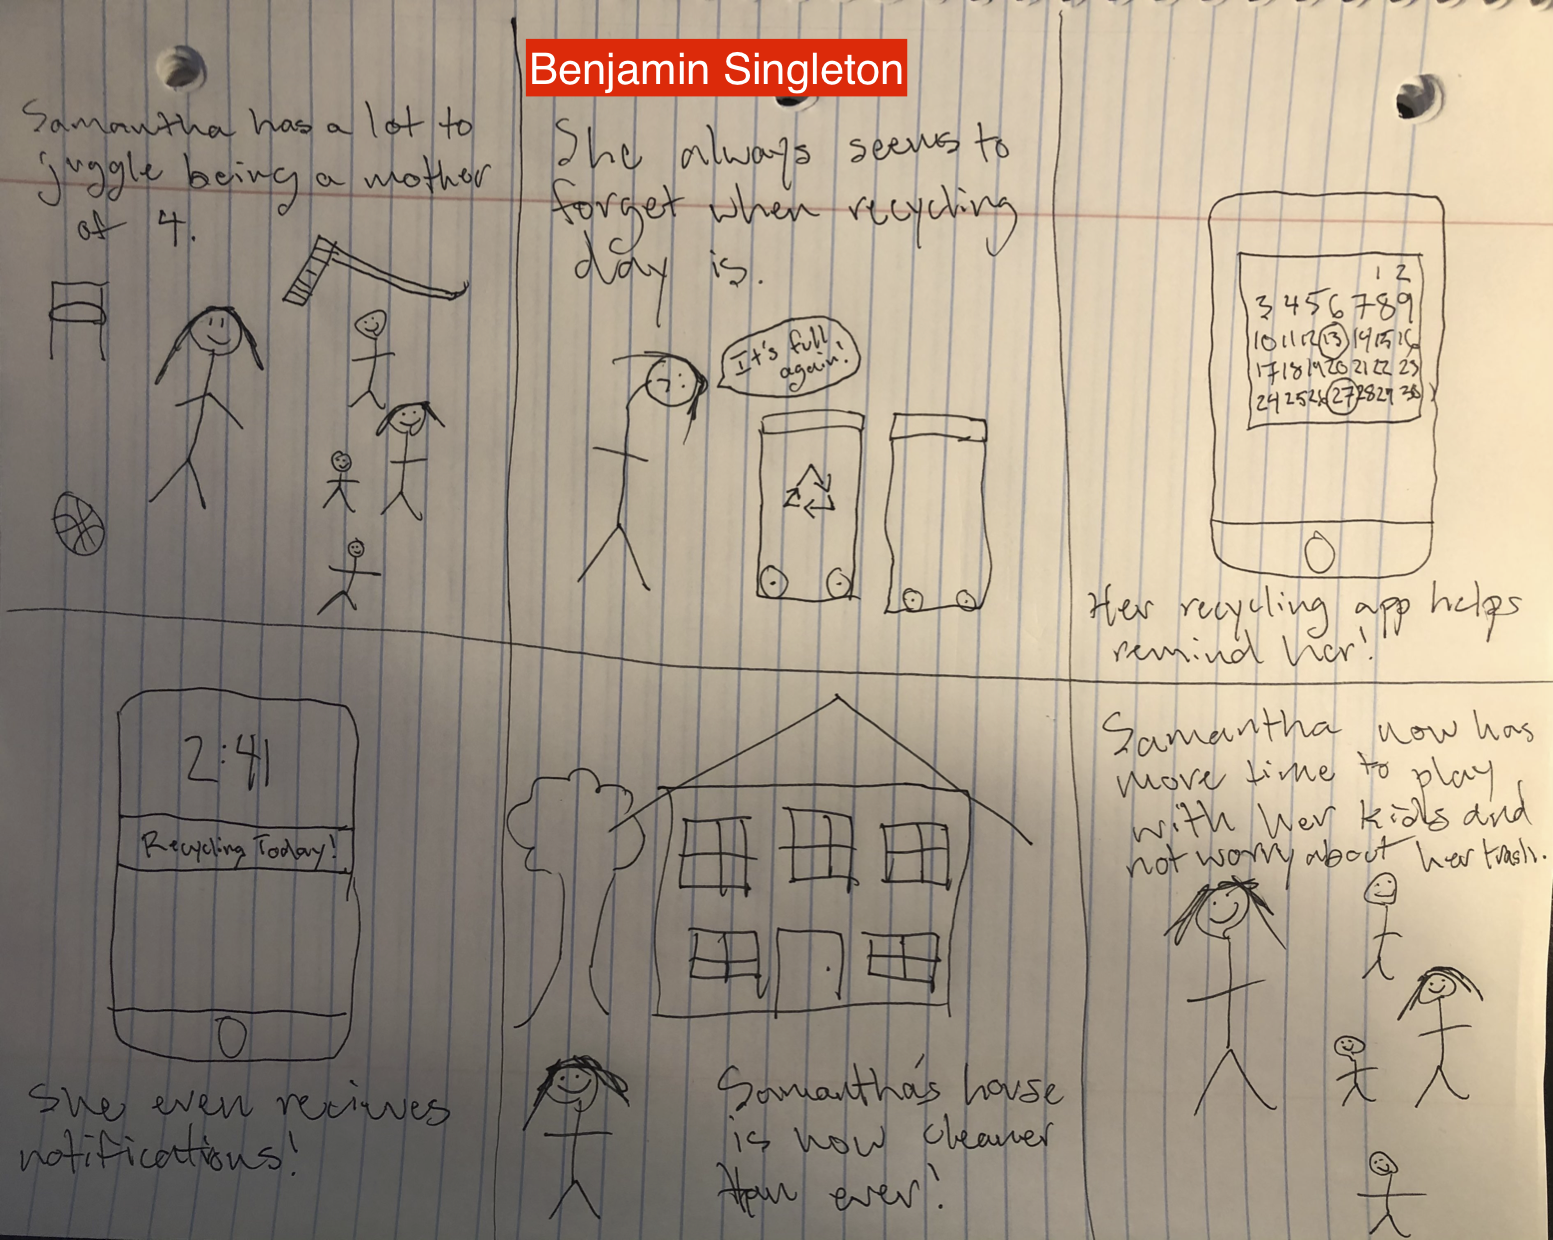 Benjamin Singleton
Samantha has a lot to
juggle being a mother
of 4.
She always seems to
forget when recycling
day is.
It's full
again!
1 2
3 4 5 6 7 8 9
10 11 12 13 14 15 16
17 18 19 20 21 22 23
24 25 26 27 28 29 30
Her recycling app helps
remind her!
2:41
Recycling Today!
She even recieves
notifications!
Samantha's house
is now cleaner
than ever!
Samantha now has
more time to play
with her kids and
not worry about her trash.